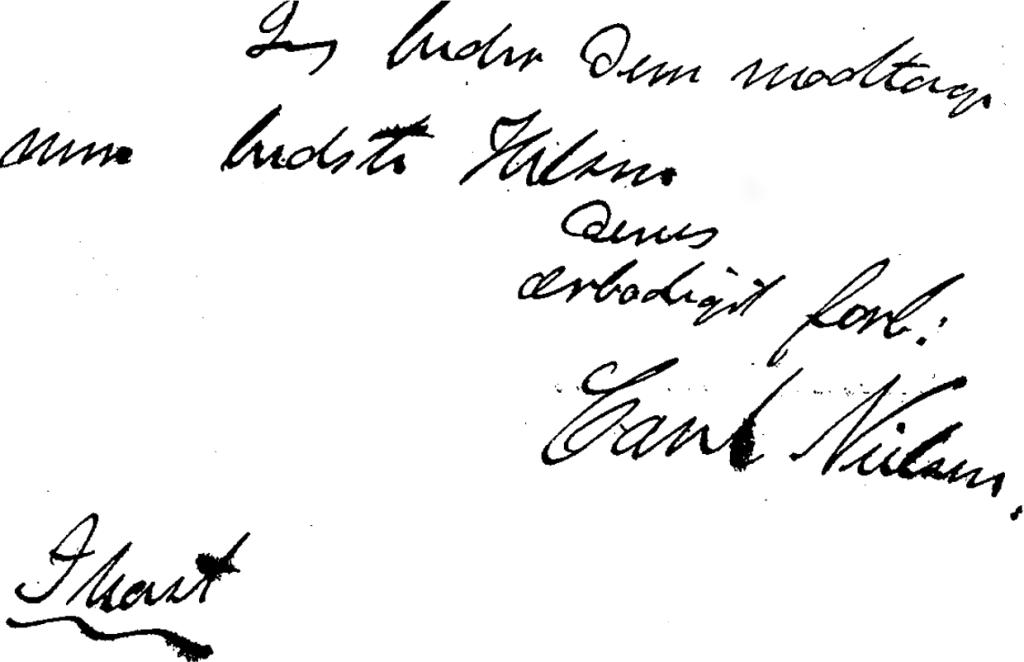 Jeg beder Dem modtage
mine bedste Hilsner
Deres
ærbødigst forb.:
Carl Nielsen.
I hast